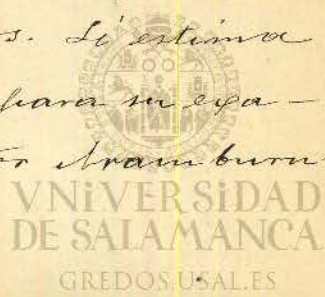 s. Si estima
para su exa-
Aramburu
VNiVERSiDAD
DE SALAMANCA
GREDOS.USAL.ES